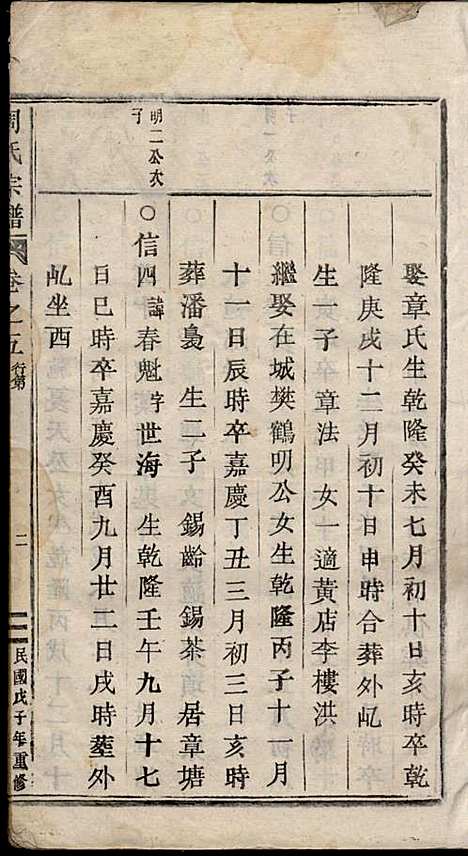 娶章氏生乾隆癸未七月初十日亥時卒乾
隆庚戌十二月初十日申時合葬外屳
生一子 章法 女一適黃店李樓洪
繼娶在城樊鶴明公女生乾隆丙子十一月
十一日辰時卒嘉慶丁丑三月初三日亥時
葬潘㠀 生二子 錫齡 錫茶 居章塘
明二公次子
○信四諱春魁字世海 生乾隆壬午九月十七
日巳時卒嘉慶癸酉九月廿二日戌時塟外
屳坐酉
周氏宗譜 卷之五 行第 二 民國戊子年重修